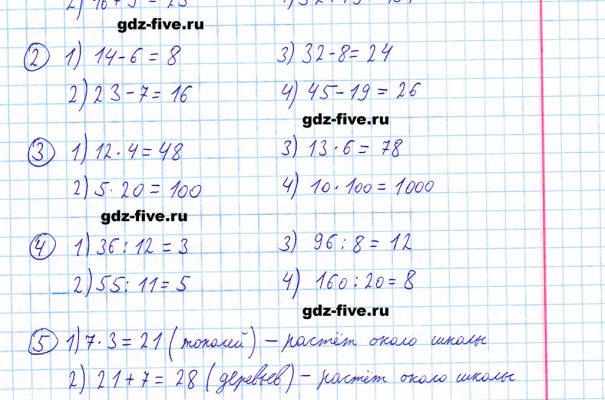 gdz-five.ru
2 1) 14-6=8 3) 32-8=24
2) 23-7=16 4) 45-19=26
gdz-five.ru
3 1) 12·4=48 3) 13·6=78
2) 5·20=100 4) 10·100=1000
gdz-five.ru
4 1) 36:12=3 3) 96:8=12
2) 55:11=5 4) 160:20=8
gdz-five.ru
5 1) 7·3=21 (тополей) - растёт около школы
2) 21+7=28 (деревьев) - растёт около школы